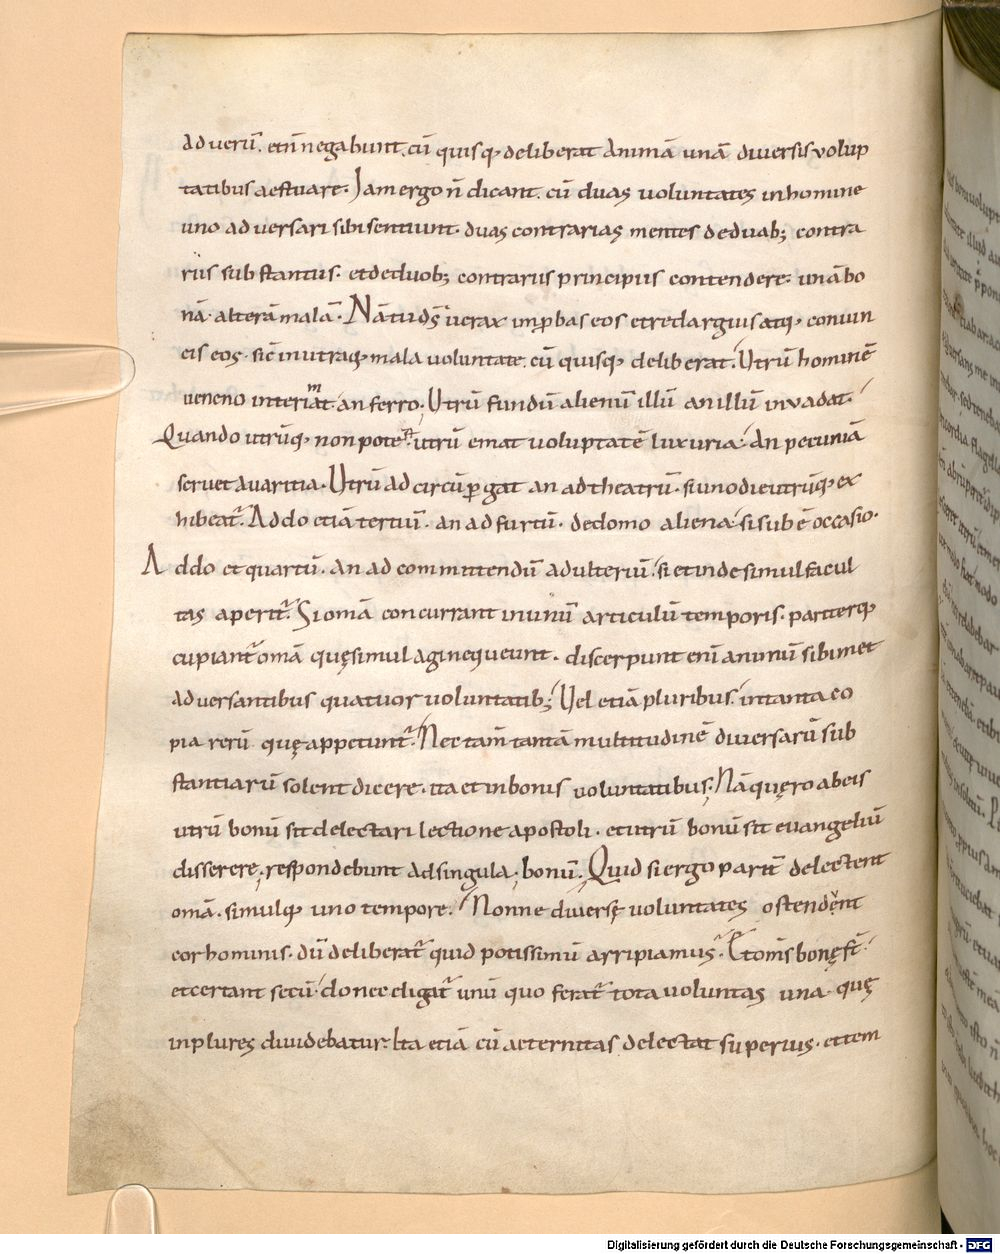 ad verū. et n̄ negabunt. cū quisq; deliberat animā unā diversis volup
tatibus aestuare. Iam ergo n̄ dicant. cū duas voluntates in homine
uno adversari sibi sentiunt. duas contrarias mentes de duab; contra
riis substantiis. et de duob; contrariis principiis contendere. unā bo
nā. alterā malā. Nā tu ds̄ verax inp̱bas eos et redarguis atq; convin
cis eos. sic̄ in utraq; mala voluntate. cū quisq; deliberat. Utrū hominē
veneno interimat. an ferro. Utrū fundū alienū illū an illū invadat.
Quando utrūq; non potest. utrū emat voluptatē luxuria. An pecuniā
servet avaritia. Utrū ad circū p̱gat an ad theatrū. si uno die utrūq; ex
hibeat᷑. Addo etiā tertiū. an ad furtū. de domo aliena. si sub ē occasio.
Addo et quartū. an ad committendū adulteriū. si et inde simul facul
tas aperit᷑. Si om̄a concurrant in unū articulū temporis. pariterq;
cupiant᷑ om̄a quę simul agi nequeunt. discerpunt enī animū sibimet
adversantibus quatuor voluntatib; Vel etiā pluribus. in tanta co
pia rerū quę appetunt᷑. Nec tam̄ tantā multitudinē diversarū sub
stantiarū solent dicere. ita et in bonis voluntatibus. Nā quęro ab eis
utrū bonū sit delectari lectione apostoli. et utrū bonū sit evangeliū
disserere. respondebunt ad singula. bonū. Quid si ergo parit̄ delectent
om̄a. simulq; uno tempore. Nonne diversę voluntates ostendent
cor hominis. dū deliberat᷑ quid potissimū arripiamus. Et om̄s bonę st̄.
et certant secū. donec eligat᷑ unū quo ferat᷑ tota voluntas una. quę
in plures dividebatur. Ita etiā cū aeternitas delectat superius. et tem
Digitalisierung gefördert durch die Deutsche Forschungsgemeinschaft - DFG